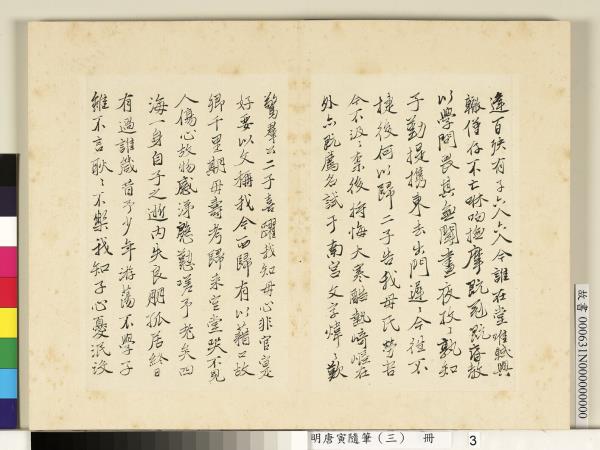 遠百疾有子六人六人今誰在堂唯軾與
轍僅存不亡咻呴撫摩既冠既昏教
以學問畏其無聞晝夜孜孜孰知
子勤提攜東去出門遲遲今往不
捷後何以歸二子告我母氏勞苦
今不汲汲柰後將悔大寒酷熱崎嶇在
外亦既薦名試于南宮文字煒煒歎
驚群公二子喜躍我知母心非官實
好要以文稱我今西歸有以藉口故
鄉千里期母壽考歸來空堂哭不見
人傷心故物感涕慇懃嗟予老矣四
海一身自子之逝內失良朋孤居終日
有過誰箴昔予少年游蕩不學子
雖不言耿耿不樂我知子心憂泯沒
故書000631N000000000
明唐寅隨筆(三) 冊 3